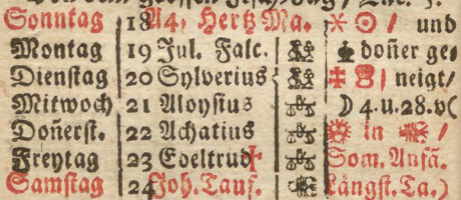 Sonntag 18 A4. Hertz Ma. ☉ / und
Montag 19 Jul. Falc. doñer ge/
Dienstag 20 Sylverius / neigt/
Mitwoch 21 Aloysius ☽ 4.u.28.v(
Doñerst. 22 Achatius in /
Freytag 23 Edeltrud† Som. Anfã.
Samstag 24 Joh. Tauf. Längst. Ta.)